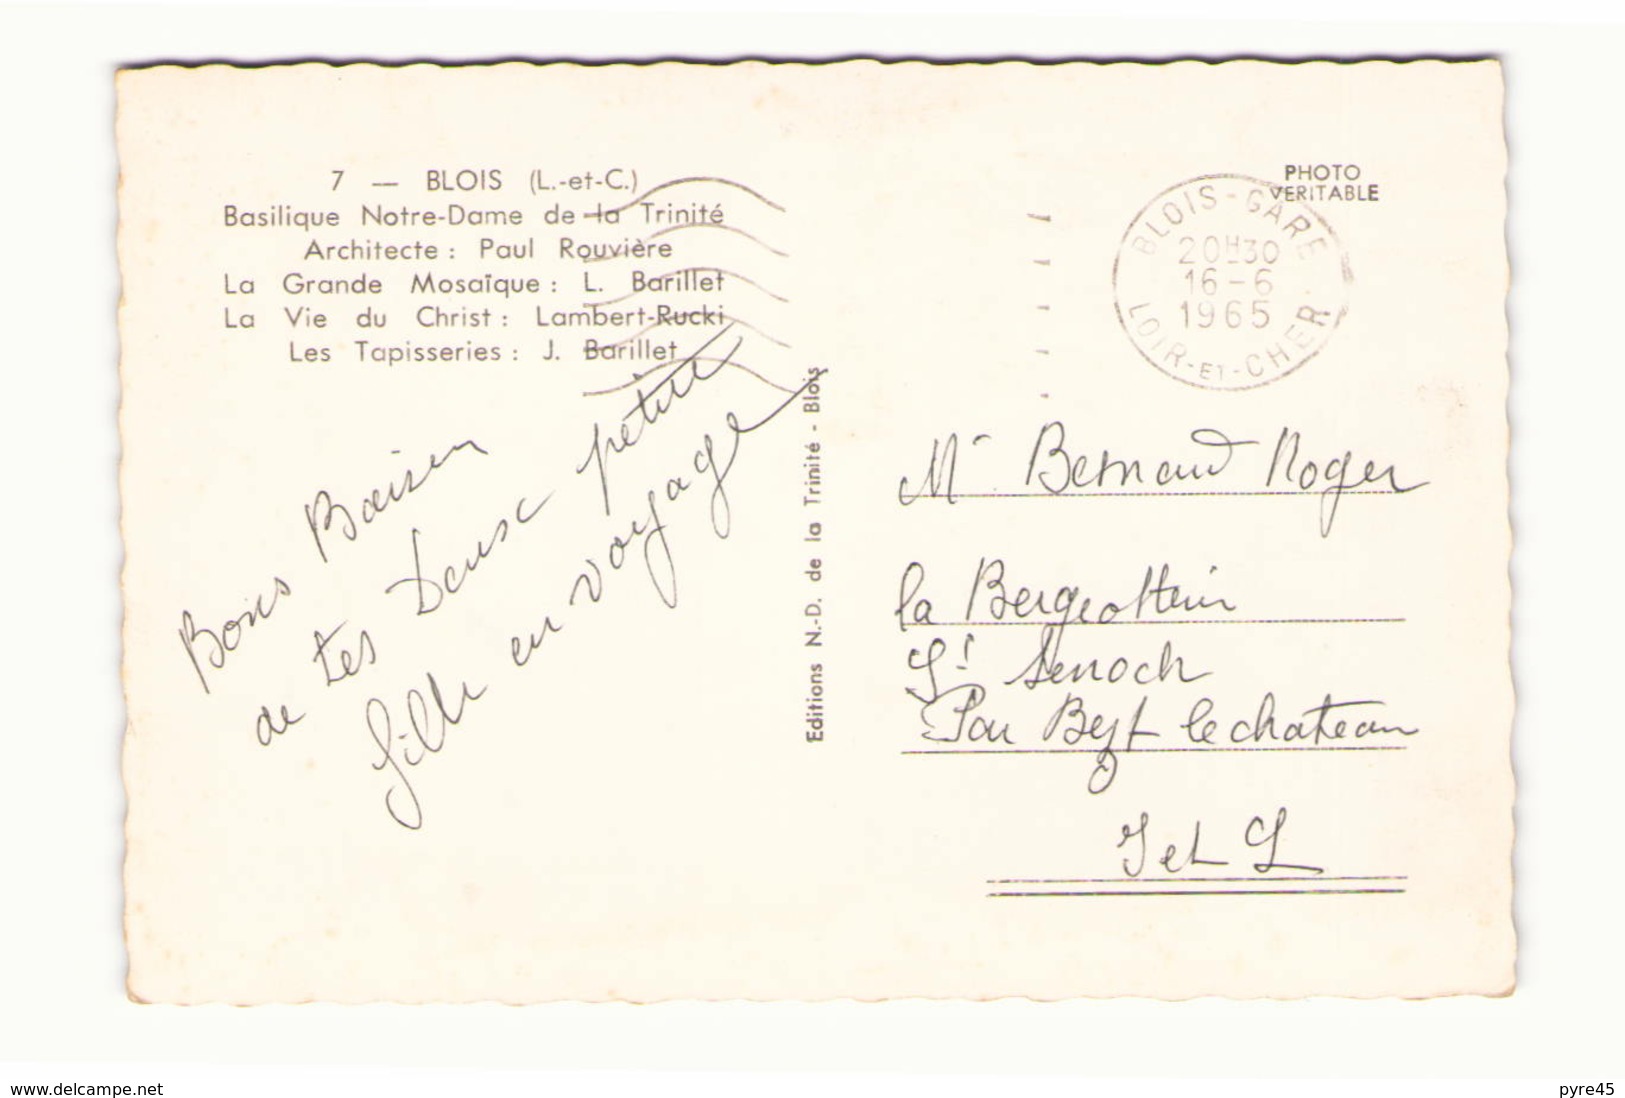 7 — BLOIS (L.-et-C.)
Basilique Notre-Dame de la Trinité
Architecte : Paul Rouvière
La Grande Mosaïque : L. Barillet
La Vie du Christ : Lambert-Rucki
Les Tapisseries : J. Barillet
Bons Baisers
de tes Deux petite
fille en voyage
Editions N.-D. de la Trinité - Blois
PHOTO
VERITABLE
BLOIS-GARE
20H30
16-6
1965
LOIR-ET-CHER
Mr Bernard Roger
la
St Senoch
Par le chateau
I et L
www.delcampe.net
pyre45